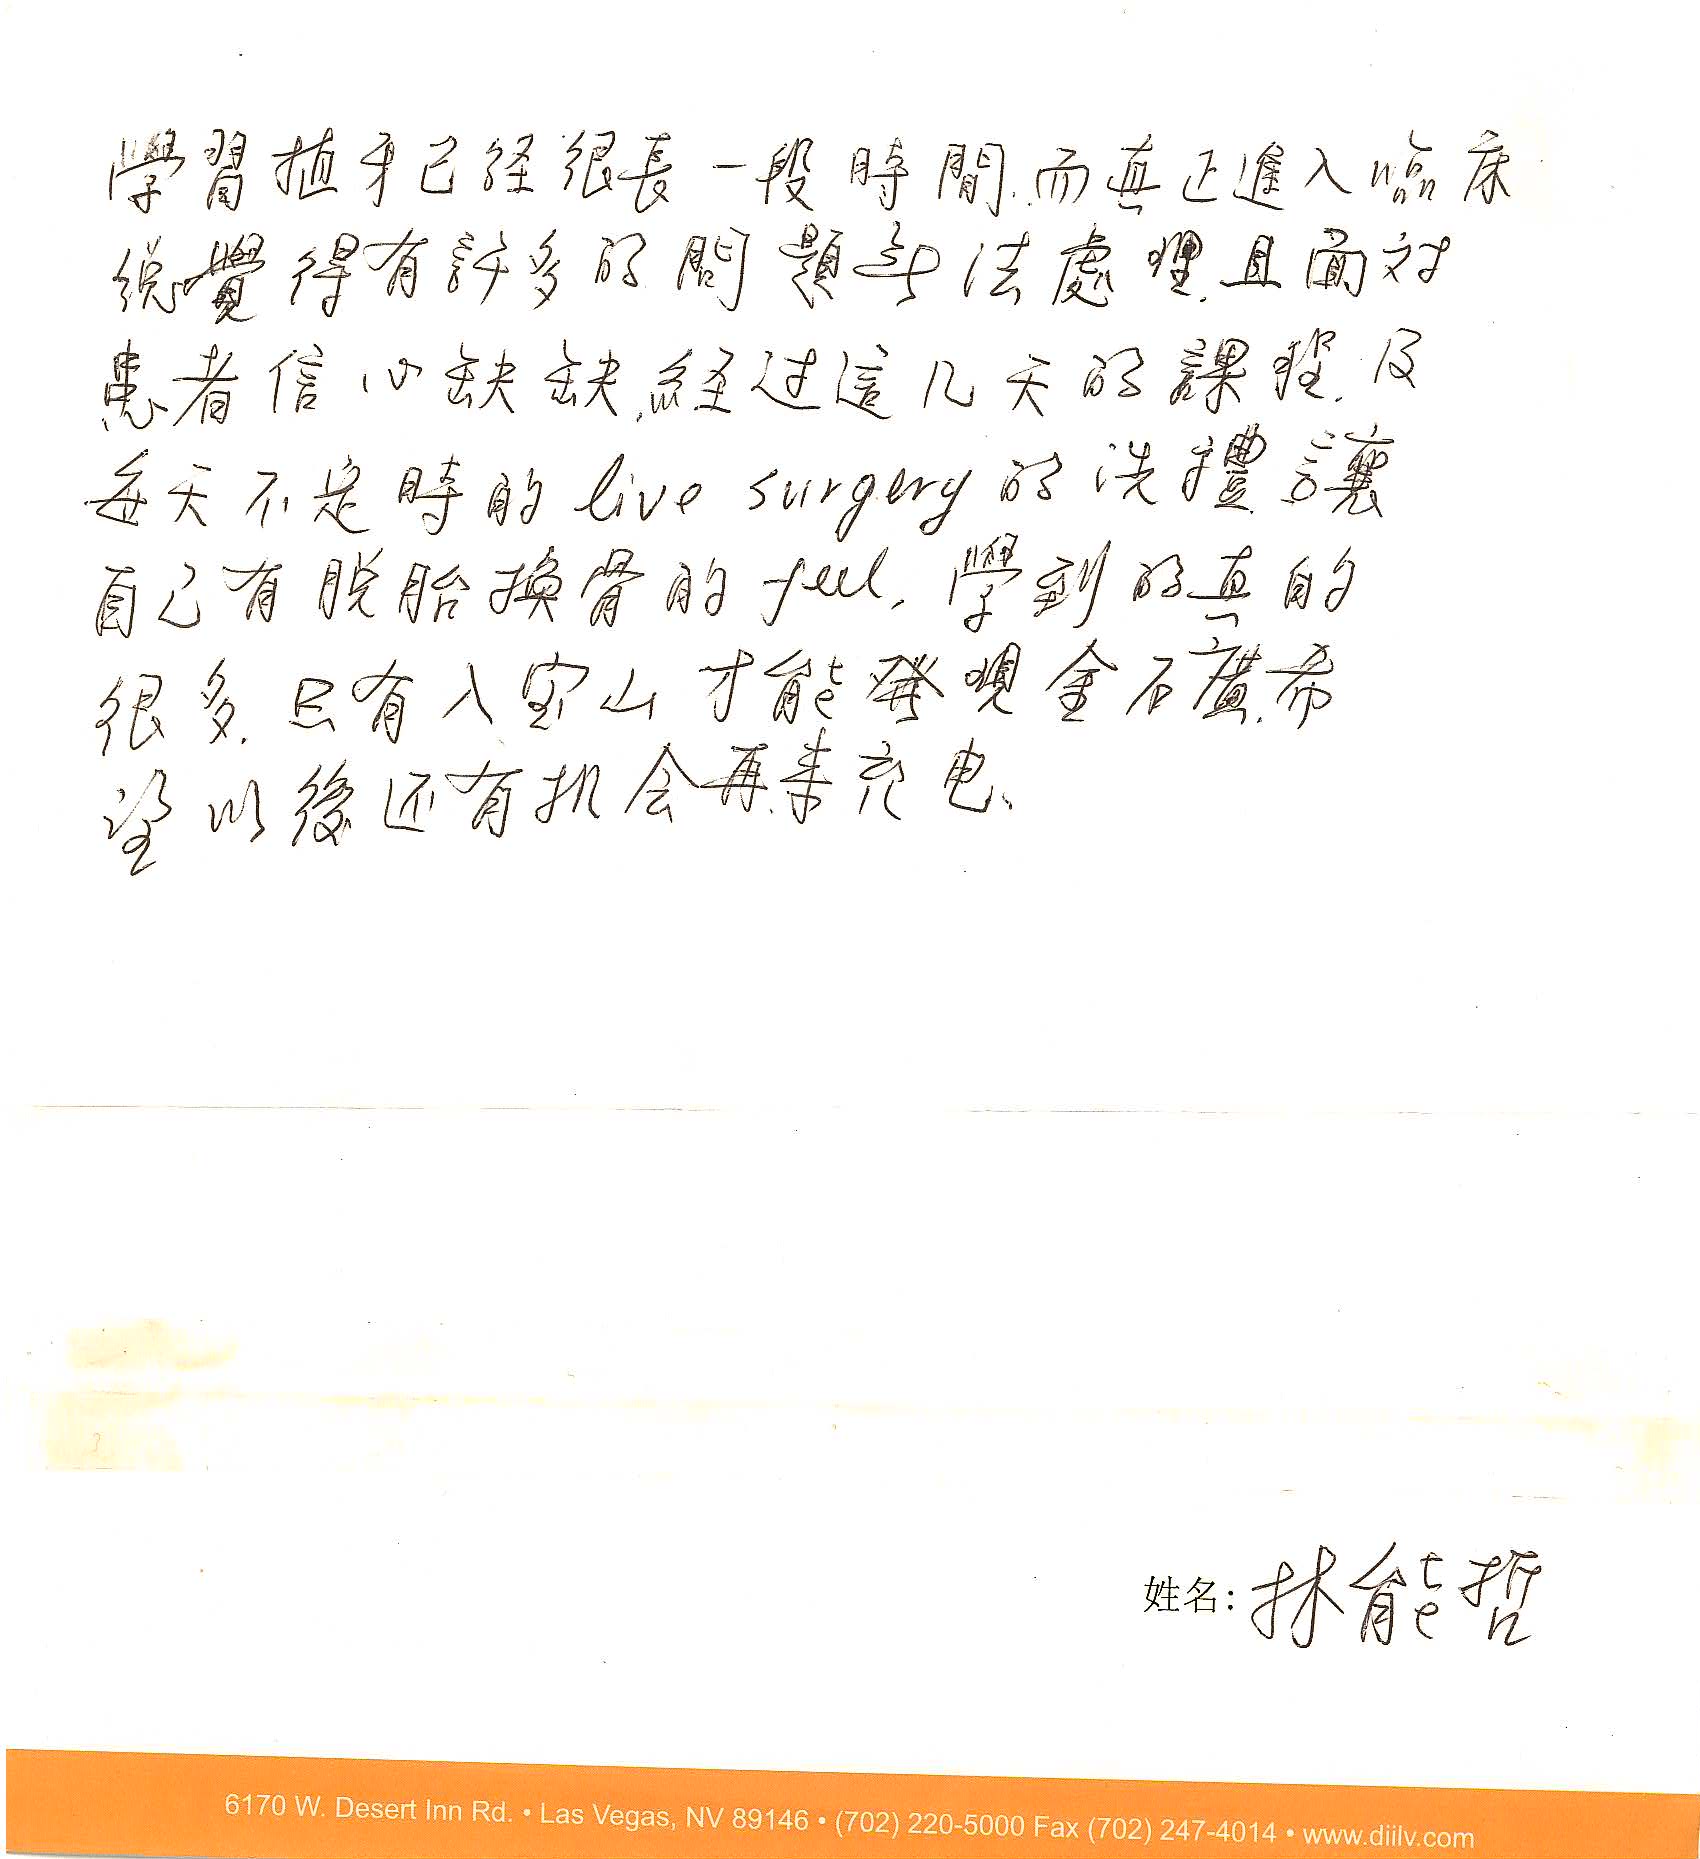 學習植牙已经很長一段時間.而真正進入臨床
總覺得有許多的問題無法處理.且面对
患者信心缺缺.經过這几天的課程.及
每天不定時的 live surgery 的洗禮.讓
自己有脫胎換骨的 feel. 學到的真的
很多.只有入宝山才能發現金石礦.希
望以後还有机会再来充电、
姓名: 林能哲
6170 W. Desert Inn Rd. • Las Vegas, NV 89146 • (702) 220-5000 Fax (702) 247-4014 • www.diilv.com